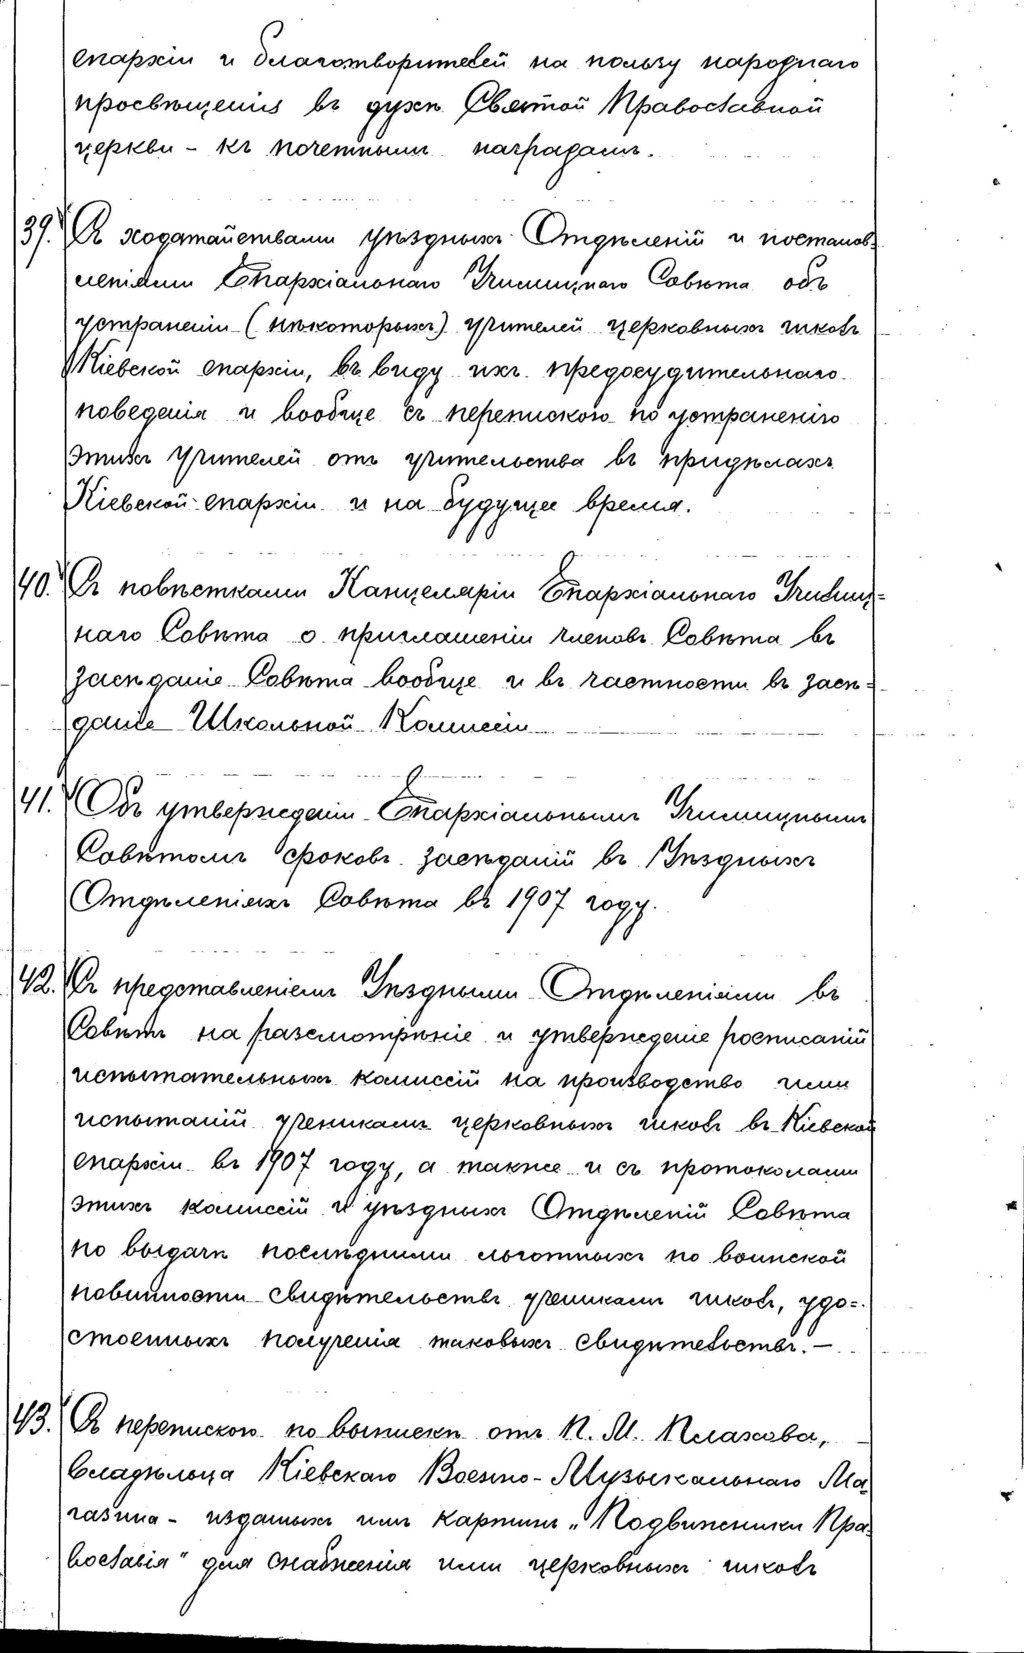 епархіи и благотворителей на пользу народнаго
просвѣщенія въ духѣ Святой Православной
церкви – къ почетнымъ наградамъ.
39. Съ ходатайствами уѣздныхъ Отдѣленій и постанов-
леніями Епархіальнаго Училищнаго Совѣта объ
устраненіи (нѣкоторыхъ) учителей церковныхъ школъ
Кіевской епархіи, въ виду ихъ предосудительнаго
поведенія и вообще съ перепискою по устраненію
этихъ учителей отъ учительства въ придѣлахъ
Кіевской епархіи и на будущее время.
40. Съ повѣстками Канцеляріи Епархіальнаго Училищ=
наго Совѣта о приглашеніи членовъ Совѣта въ
засѣданіе Совѣта вообще и въ частности въ засѣ=
даніе Школьной Комиссіи
41. Объ утвержденіи Епархіальнымъ Училищнымъ
Совѣтомъ сроковъ засѣданій въ Уѣздныхъ
Отдѣленіяхъ Совѣта въ 1907 году.
42. Съ представленіемъ Уѣздными Отдѣленіями въ
Совѣтъ на разсмотрѣніе и утвержденіе росписаній
испытательныхъ комиссій на производство ими
испытаній ученикамъ церковныхъ школъ въ Кіевской
епархіи въ 1907 году, а также и съ протоколами
этихъ комиссій и уѣздныхъ Отдѣленій Совѣта
по выдачѣ послѣдними льготныхъ по воинской
повинности свидѣтельствъ ученикамъ школъ, удо=
стоенныхъ полученія таковыхъ свидѣтельствъ. –
43. Съ перепискою по выпискѣ отъ П. М. Плахова,
владѣльца Кіевскаго Военно-Музыкальнаго Ма-
газина – изданныхъ имъ картинъ „Подвижники Пра-
вославія" для снабженія ими церковныхъ школъ